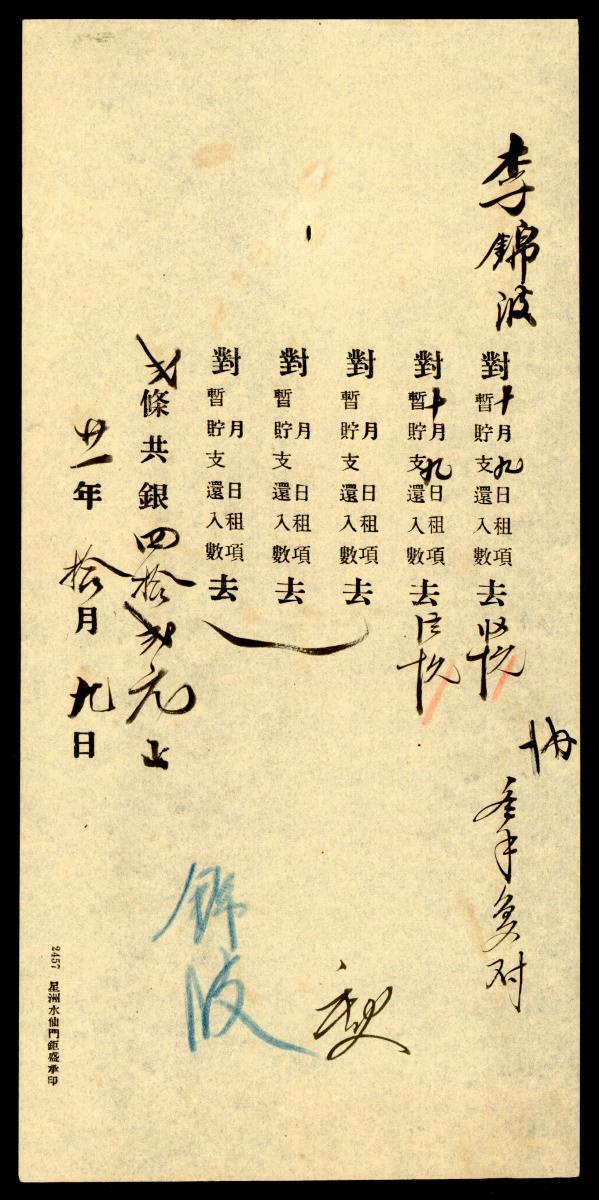 李錦波
對暫貯支還入數 十月九日租項去
對暫貯支還入數 十月九日租項去
對暫貯支還入數 月 日租項去
對暫貯支還入數 月 日租項去
對暫貯支還入數 月 日租項去
弍條共銀四拾弍元上
廿一年拾月九日
錦波
2457 星洲水仙門鉅盛承印